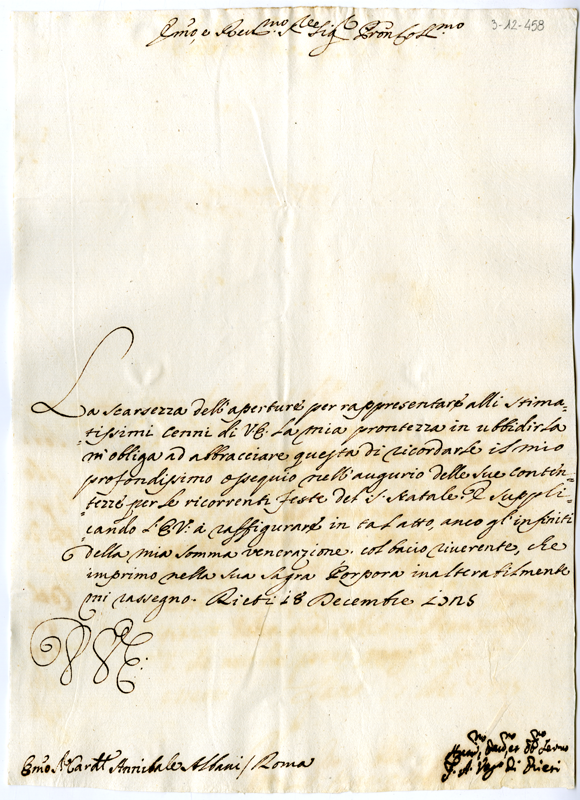 3-12-458
Emo, e Revmo Sigre Sig Pron Colmo
La scarsezza dell'aperture per rappresentare alli stima-
tissimi cenni di VE. la mia prontezza in ubbidirla
m'obliga ad abbracciare questa di ricordarle il mio
profondissimo ossequio nell'augurio delle sue conten-
tezze per le ricorrenti feste del S. Natale. E suppli-
cando l'E.V. a raffigurare in tal atto, anco gl'infiniti
della mia somma venerazione. col bacio riverente, che
imprimo nella sua Sagra Porpora inalterabilmente
mi rassegno. Rieti 18 Decembre 1725
V E:
Emo Sr Cardl Annibale Albani / Roma
Humo, Devo, et Obmo Servo
A. Vesco di Rieti